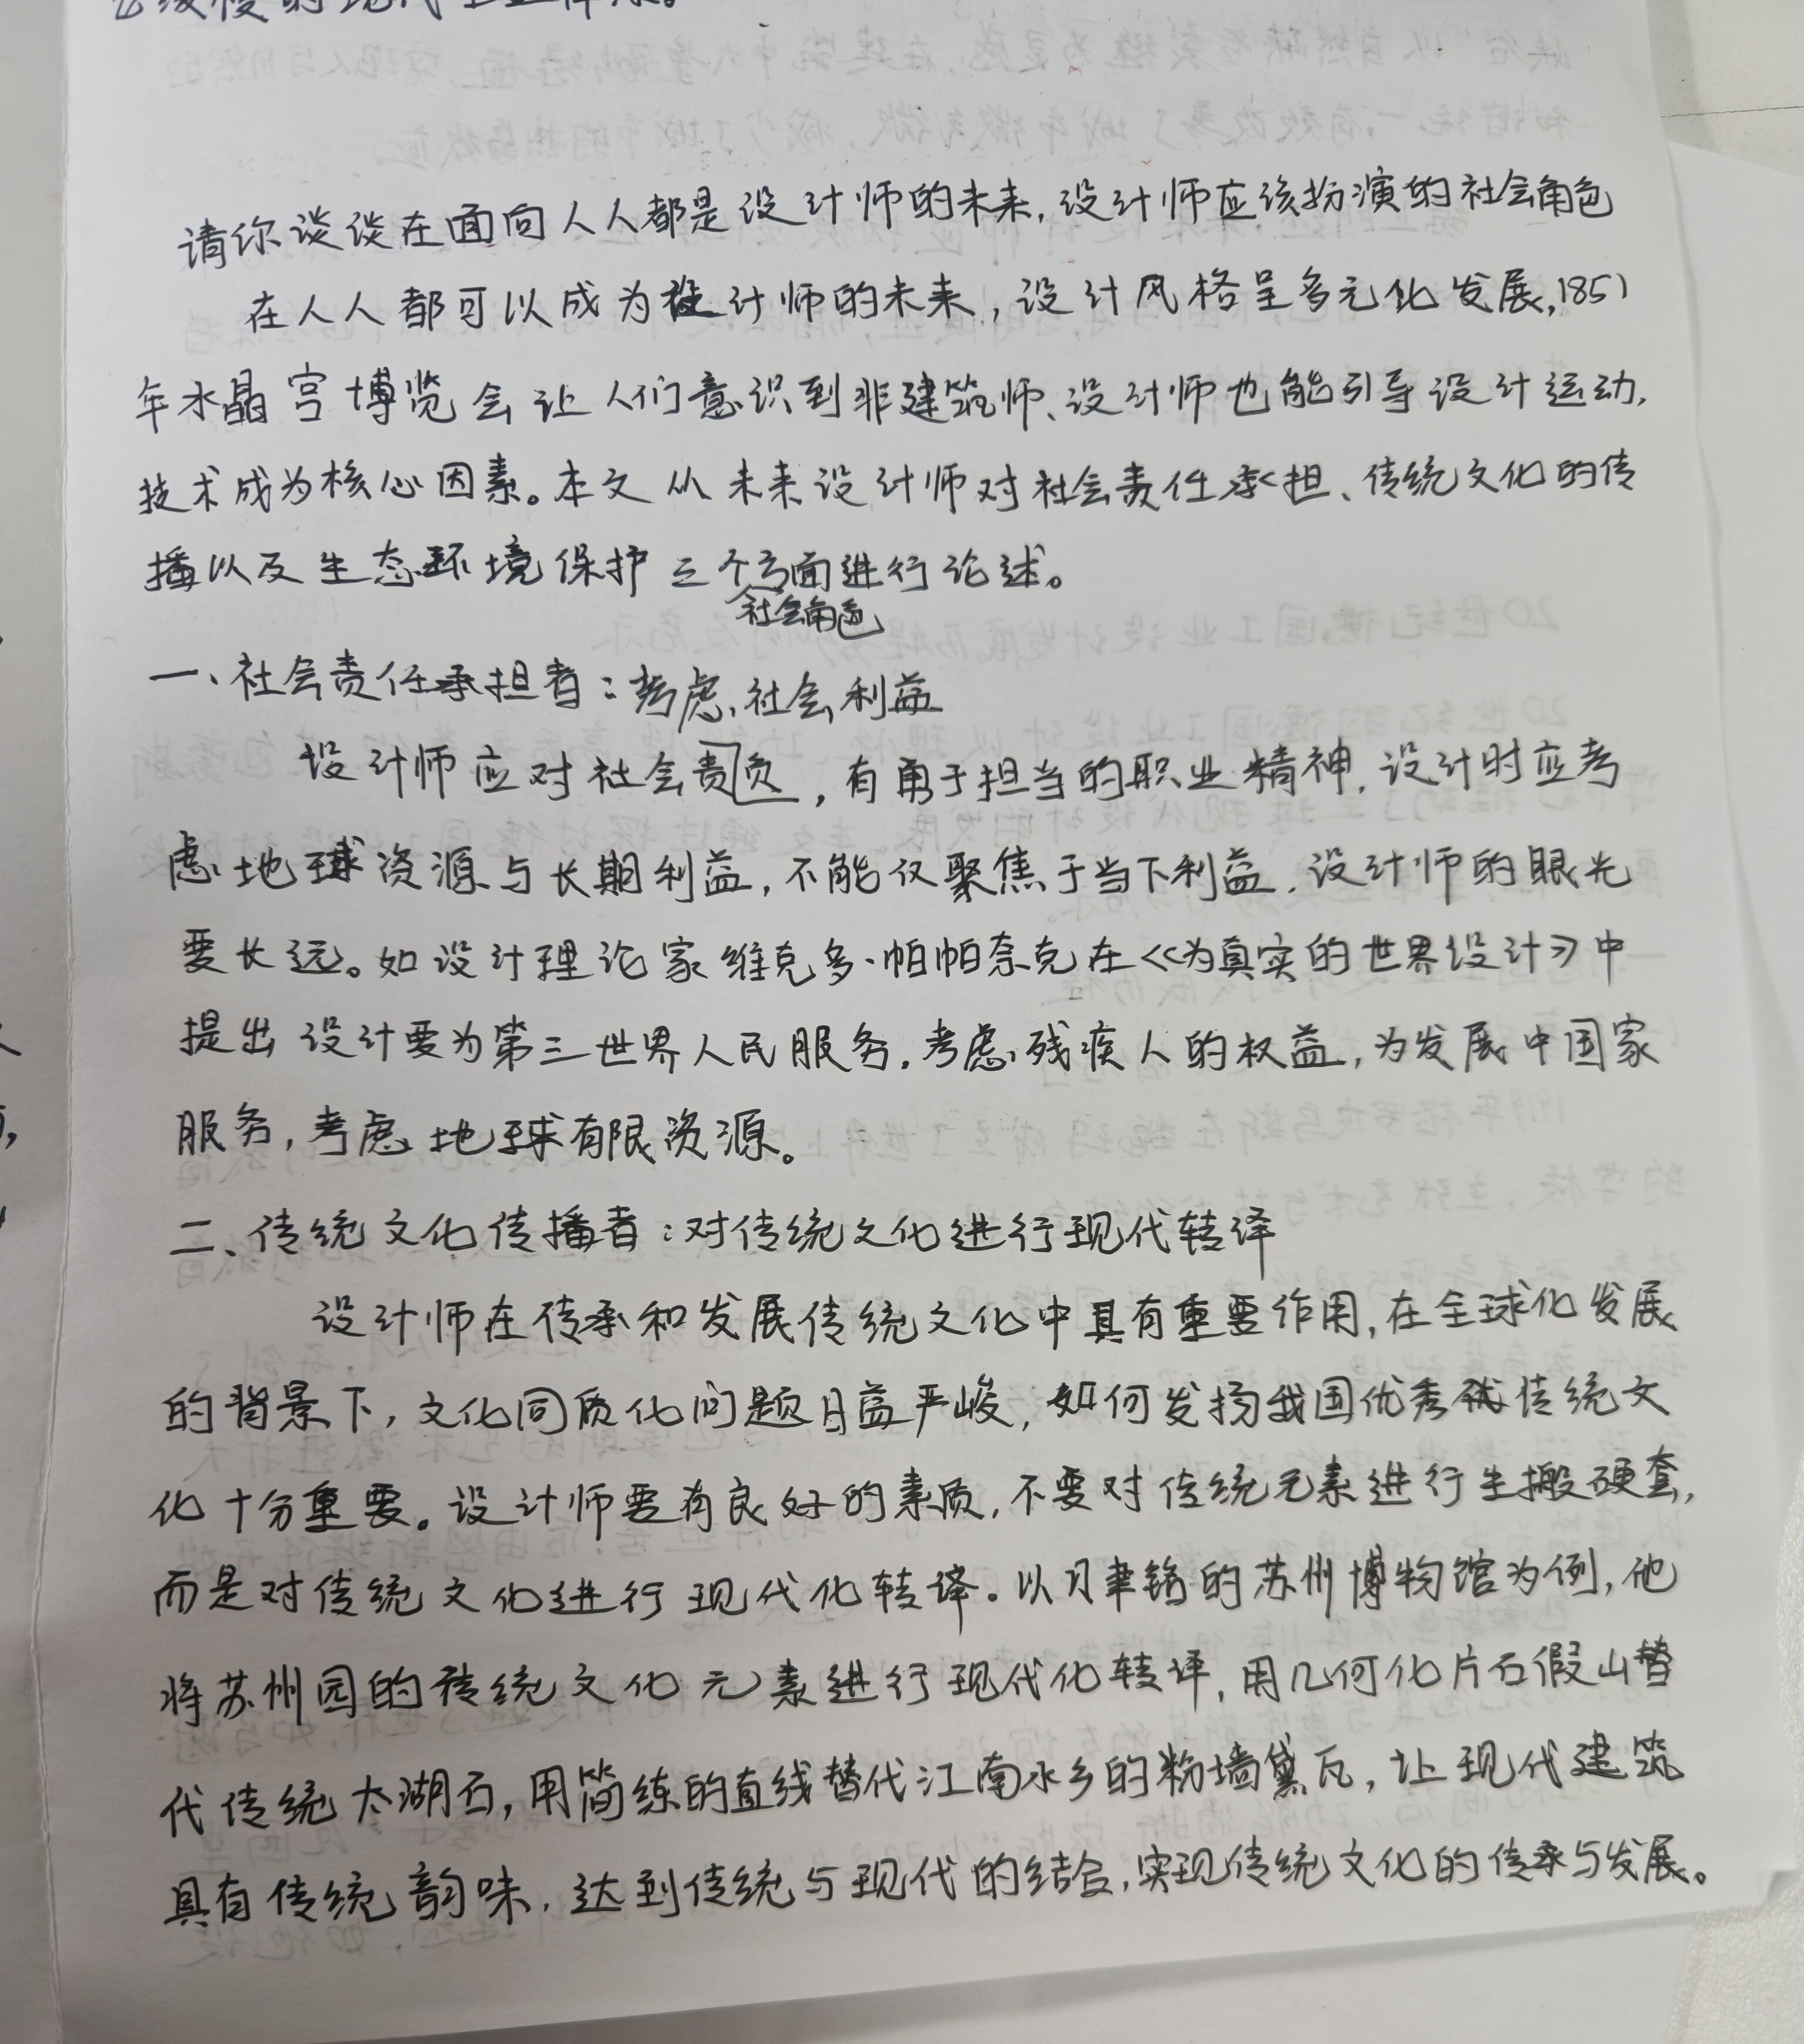 的现代
请你谈谈在面向人人都是设计师的未来,设计师应该扮演的社会角色
在人人都可以成为设计师的未来,设计风格呈多元化发展,1851
年水晶宫博览会让人们意识到非建筑师、设计师也能引导设计运动,
技术成为核心因素。本文从未来设计师对社会责任承担、传统文化的传
播以及生态环境保护三个方面进行论述。
社会角色
一、社会责任承担者:考虑社会利益
设计师应对社会责负,有勇于担当的职业精神,设计时应考
虑地球资源与长期利益,不能仅聚焦于当下利益,设计师的眼光
要长远。如设计理论家维克多·帕帕奈克在《为真实的世界设计》中
提出设计要为第三世界人民服务,考虑残疾人的权益,为发展中国家
服务,考虑地球有限资源。
二、传统文化传播者:对传统文化进行现代转译
设计师在传承和发展传统文化中具有重要作用,在全球化发展
的背景下,文化同质化问题日益严峻,如何发扬我国优秀传统文
化十分重要。设计师要有良好的素质,不要对传统元素进行生搬硬套,
而是对传统文化进行现代化转译。以贝聿铭的苏州博物馆为例,他
将苏州园的传统文化元素进行现代化转译,用几何化片石假山替
代传统太湖石,用简练的直线替代江南水乡的粉墙黛瓦,让现代建筑
具有传统韵味,达到传统与现代的结合,实现传统文化的传承与发展。